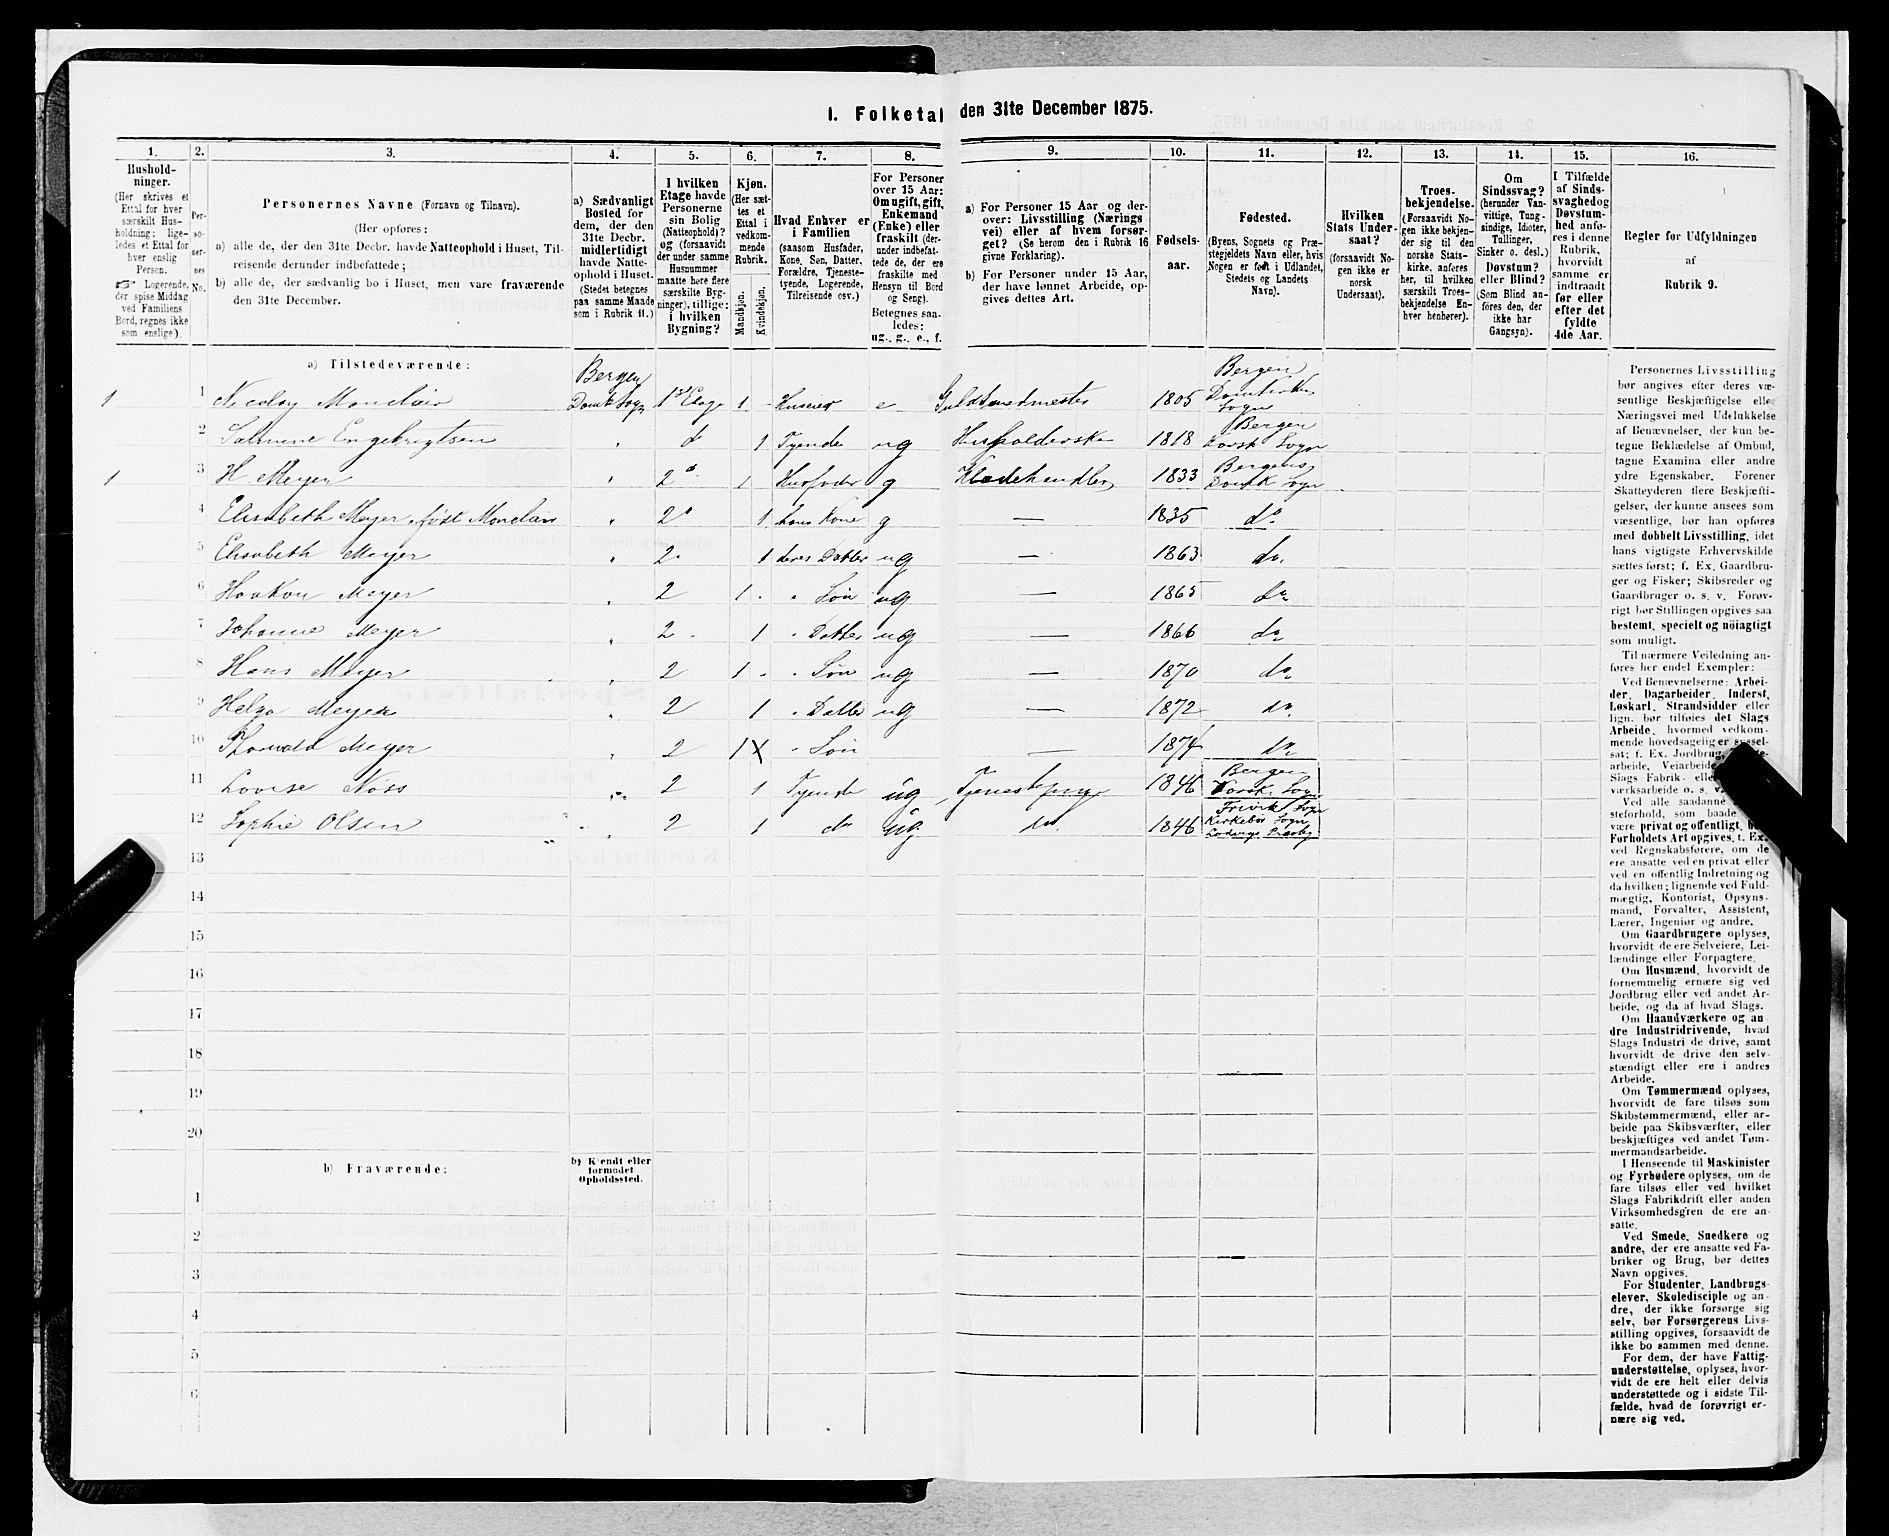 I. Folketal den 31te December 1875.
1.
Hushold-
ninger.
(Her skrives et
Ettal for hver
særskilt Hus-
holdning; lige-
ledes et Ettal for
hver enslig
Person.
☞ Logerende,
der spise Middag
ved Familiens
Bord, regnes ikke
som enslige).
2.
Per-
soner-
nes
No.
3.
Personernes Navne (Fornavn og Tilnavn).
(Her opføres:
a) alle de, der den 31te Decbr. havde Natteophold i Huset, Til-
reisende derunder indbefattede;
b) alle de, der sædvanlig bo i Huset, men vare fraværende
den 31te December.
4.
a) Sædvanligt
Bosted for
dem, der den
31te Decbr.
midlertidigt
havde Natte-
ophold i Huset.
(Stedet betegnes
paa samme Maade
som i Rubrik 11.)
5.
I hvilken
Etage havde
Personerne
sin Bolig
(Natteophold)?
og (forsaavidt
der under samme
Husnummer
maatte høre flere
særskilte Byg-
ninger), tillige:
i hvilken
Bygning?
6.
Kjøn.
(Her sæt-
tes et
Ettal i
vedkom-
mende
Rubrik.
Mandkjøn.
Kvindekjøn.
7.
Hvad Enhver er
i Familien
(saasom Husfader,
Kone, Søn, Datter,
Forældre, Tjeneste-
tyende, Logerende,
Tilreisende osv.)
8.
For Personer
over 15 Aar:
Om ugift, gift,
Enkemand
(Enke) eller
fraskilt (der-
under indbefat-
tede de, der ere
fraskilte med
Hensyn til Bord
og Seng).
Betegnes saa-
ledes:
ug., g., e., f.
9.
a) For Personer 15 Aar og der-
over: Livsstilling (Nærings
vei) eller af hvem forsør-
get? (Se herom den i Rubrik 16
givne Forklaring).
b) For Personer under 15 Aar,
der have lønnet Arbeide, op-
gives dettes Art.
10.
Fødsels-
aar.
11.
Fødested.
(Byens, Sognets og Præ-
stegjeldets Navn eller, hvis
Nogen er født i Udlandet,
Stedets og Landets
Navn).
12.
Hvilken
Stats Under-
saat?
(forsaavidt No-
gen ikke er
norsk
Undersaat).
13.
Troes-
bekjendelse.
(Forsaavidt No-
gen ikke bekjen-
der sig til den
norske Stats-
kirke, anføres
her, til hvilken
særskilt Troes-
bekjendelse En-
hver henhører).
14.
Om
Sindssvag?
(herunder Van-
vittige, Tung-
sindige, Idioter,
Tullinger,
Sinker o. desl.)
Døvstum?
eller Blind?
(Som Blind an-
føres den, der
ikke har
Gangsyn).
15.
I Tilfælde
af Sinds-
svaghed og
Døvstum-
hed anfø-
res i denne
Rubrik,
hvorvidt
samme er
indtraadt
før eller
efter det
fyldte
4de Aar.
16.
Regler for Udfyldningen
af
Rubrik 9.
a) Tilstedeværende:
Bergen Bergen
1 1 Nicolay Monclair Domk. Sogn 1st Etage 1 e Guldsmedmester 1805 Domkirke Sogn
2 Salmine Engebrigtsen " do 1 Tyende ug Husholderske 1818 Bergen Korsk. Sogn
1 3 H. Meyer " 2 1 Husfader g Klædehandler 1833 Bergens Domk. Sogn
4 Elisabeth Meyer født Monclair " 2 1 hans Kone g — 1835 do
5 Elisabeth Meyer " 2 1 deres Datter ug — 1863 do
6 Haakon Meyer " 2 1 " Søn ug — 1865 do
7 Johanne Meyer " 2 1 " Datter ug — 1866 do
8 Hans Meyer " 2 1 " Søn ug — 1870 do
9 Helga Meyer " 2 1 " Datter ug — 1872 do
10 Thorvald Meyer " 2 1 " Søn — 1874 do
11 Lovise Næss " 2 1 Tyende ug Tjenestepige 1846 Bergen Korsk. Sogn
12 Sophie Olsen " 2 1 do ug do. 1846 Sogn Kirkebø Sogn
13
14
15
16
17
18
19
20
b) Fraværende:
b) Kjendt eller
formodet
Opholdssted.
1
2
3
4
5
6
Personernes Livsstilling
bør angives efter deres væ-
sentlige Beskjæftigelse eller
Næringsvei med Udelukkelse
af Benævnelser, der kun be-
tegne Beklædelse af Ombud,
tagne Examina eller andre
ydre Egenskaber. Forener
Skatteyderen flere Beskjæfti-
gelser, der kunne ansees som
væsentlige, bør han opføres
med dobbelt Livsstilling, idet
hans vigtigste Erhvervskilde
sættes først; f. Ex. Gaardbru-
ger og Fisker; Skibsreder og
Gaardbruger o. s. v. Forøv-
rigt bør Stillingen opgives saa
bestemt, specielt og nöiagtigt
som muligt.
Til nærmere Veiledning an-
føres her endel Exempler:
Ved Benævnelserne: Arbei-
der, Dagarbeider, Inderst,
Løskarl, Strandsidder eller
lign. bør tilføies det Slags
Arbeide, hvormed vedkom-
mende hovedsagelig er syssel-
sat; f. Ex. Jordbrug,
arbeide, Veiarbeide,
Slags Fabrik- eller
værksarbeide o. s. v.
Ved alle saadanne
steforhold, som baade
være privat og offentligt,
Forholdets Art opgives, t. Ex.
ved Regnskabsførere, om de
ere ansatte ved en privat eller
ved en offentlig Indretning og
da hvilken; lignende ved Fuld-
mægtig, Kontorist, Opsyns-
mand, Forvalter, Assistent,
Lærer, Ingeniør og andre.
Om Gaardbrugere oplyses,
hvorvidt de ere Selveiere, Lei-
lændinge eller Forpagtere.
Om Husmænd, hvorvidt de
fornemmelig ernære sig ved
Jordbrug eller ved andet Ar-
beide, og da af hvad Slags.
Om Haandværkere og an
dre Industridrivende, hvad
Slags Industri de drive, samt
hvorvidt de drive den selv-
stændigt eller ere i andres
Arbeide.
Om Tømmermænd oplyses,
hvorvidt de fare tilsøs som
Skibstømmermænd, eller ar-
beide paa Skibsværfter, eller
beskjæftiges ved andet Tøm-
mermandsarbeide.
I Henseende til Maskinister
og Fyrbødere oplyses, om de
fare tilsøs eller ved hvilket
Slags Fabrikdrift eller anden
Virksomhedsgren de ere an-
satte.
Ved Smede, Snedkere og
andre, der ere ansatte ved Fa-
briker og Brug, bør dettes
Navn opgives.
For Studenter, Landbrugs-
elever, Skoledisciple og an-
dre, der ikke forsørge sig
selv, bør Forsørgerens Livs-
stilling opgives, forsaavidt de
ikke bo sammen med denne.
For dem, der have Fattig-
understøttelse, oplyses, hvor-
vidt de ere helt eller delvis
understøttede og i sidste Til-
fælde, hvad de forøvrigt er-
nære sig ved.